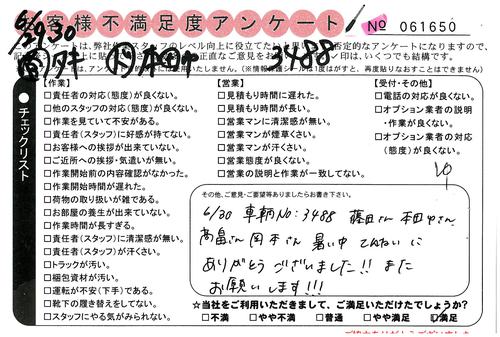 お客様不満足度アンケート
No 061650
6/29.30
3488
ンケートは、弊社
【作業】
□責任者の対応(態度)が良くない。
□他のスタッフの対応(態度)が良くない。
□作業を見ていて不安がある。
□責任者(スタッフ)に好感が持てない。
□お客様への挨拶が出来ていない。
□ご近所への挨拶・気遣いが無い。
□作業開始前の内容確認がなかった。
□作業開始時間が遅れた。
□荷物の取り扱いが雑である。
□お部屋の養生が出来ていない。
□作業時間が長すぎる。
□責任者(スタッフ)に清潔感が無い。
□責任者(スタッフ)が汗くさい。
□トラックが汚い。
□梱包資材が汚い。
□運転が不安(下手)である。
□靴下の履き替えをしてない。
□スタッフにやる気がみられない。
チェックリスト
【営業】
□見積もり時間に遅れた。
□見積もり時間が長い。
□営業マンに清潔感が無い。
□営業マンが煙草くさい。
□営業マンが汗くさい。
□営業態度が良くない。
□営業の説明と作業が一致してない。
【受付・その他】
□電話の対応が良くない。
□オプション業者の説明
・作業が良くない。
□オプション業者の対応
(態度)が良くない。
その他、ご意見・ご要望等ありましたらお書き下さい。
6/30 車輌No:3488 藤田さん 本田中さん
髙畠さん 岡本さん 暑い中 ていねいに
ありがとうございました!! また
お願いします!!!
☆当社をご利用いただきまして、ご満足いただけたでしょうか?
□不満 □やや不満 □普通 □やや満足 □満足